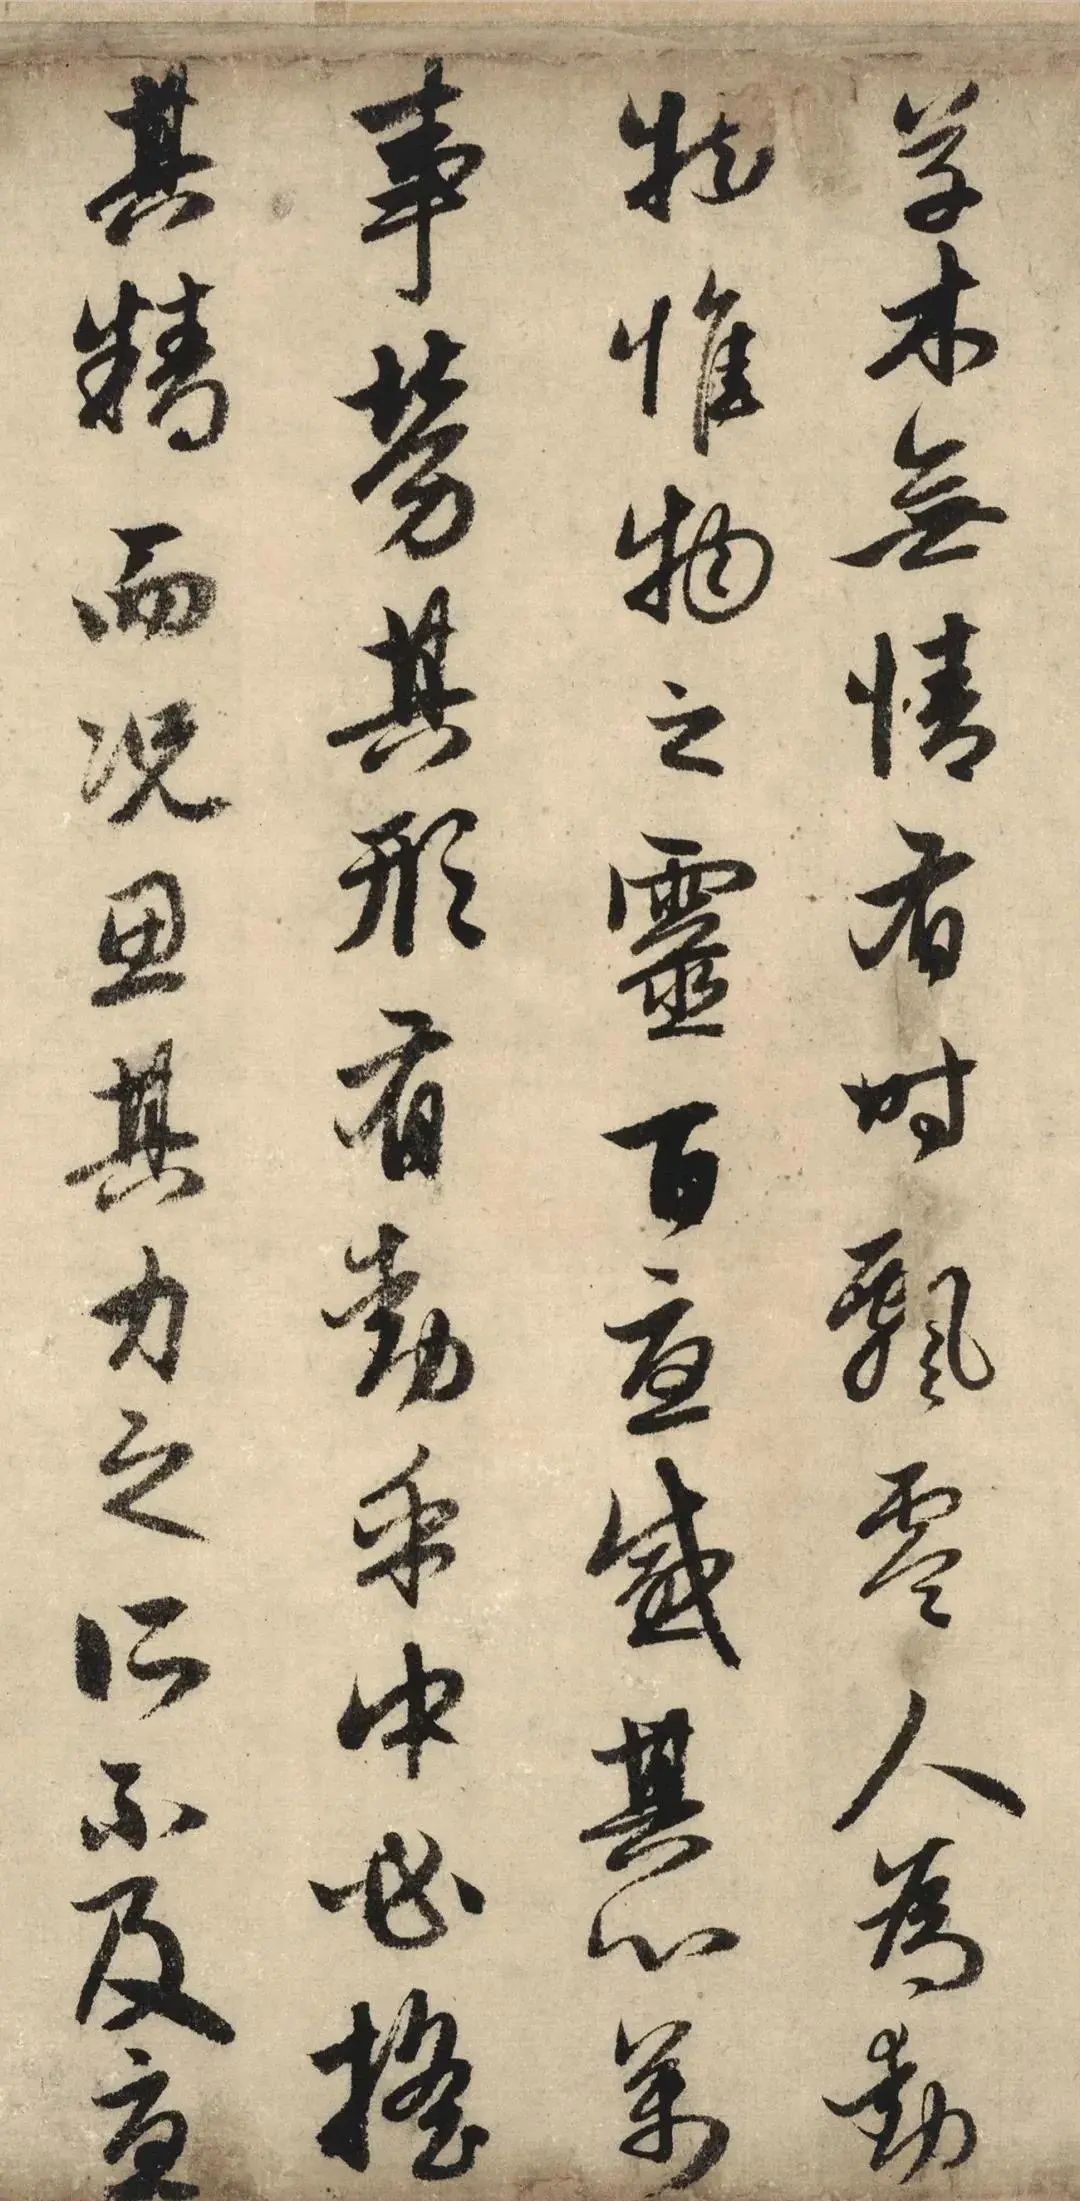 草木無情有時飄零人為動
物惟物之靈百憂感其心萬
事勞其形有動乎中必搖
其精而況思其力之所不及憂